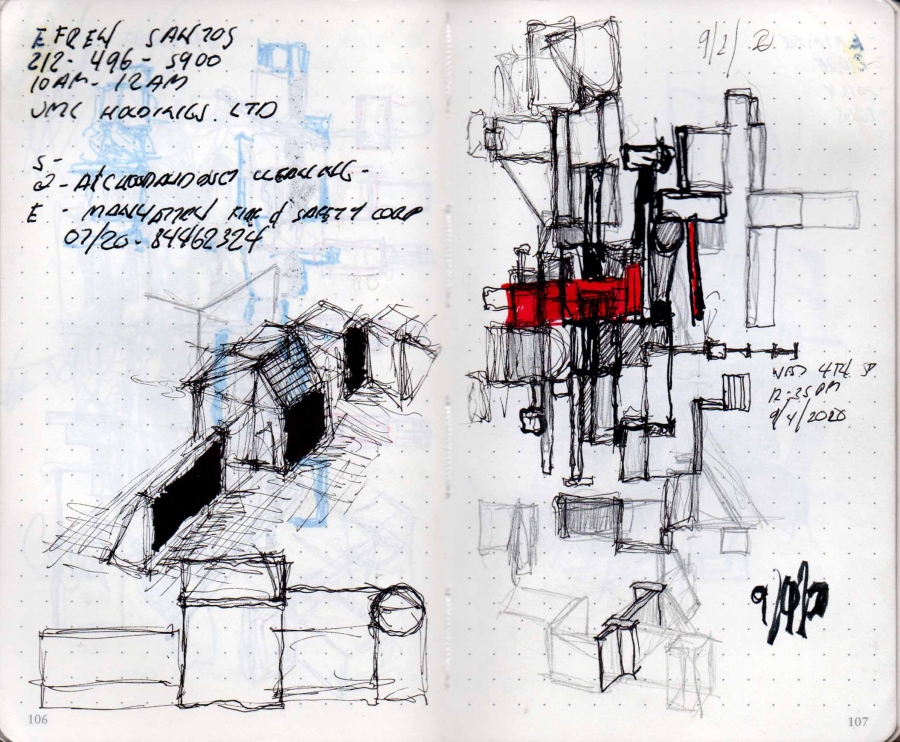 EFREN SANTOS
212-496-5900
10AM-12AM
UMC HOLDINGS. LTD
S-
2-
E - MANHATTAN FIRE & SAFETY CORP
07/20-84462324
9/2/20.
WEST 4TH. ST.
12:35PM
9/4/2020
106
107